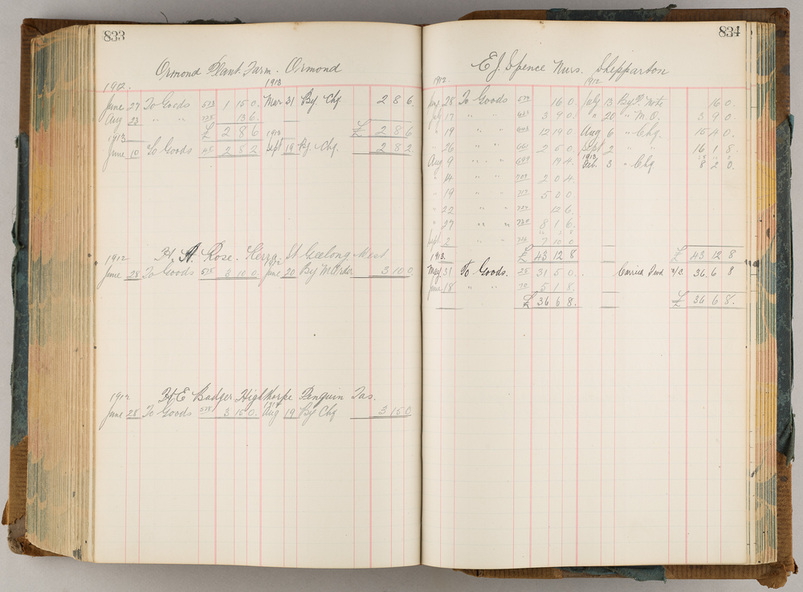 833
Ormond Plant Farm - Ormond
1912. 1913
June 27 To Goods 1 15 0. Mar 31 By Chq 2 8 6.
Aug 23 " " 13 6.
£ 2 8 6 £ 2 8 6
1913 1913
June 10 To Goods 2 8 2 Sept 19 By Chq. 2 8 2
1912 H. A. Rose. St Geelong West
June 28 To Goods 515 3 10 0. June 20 By M Order 3 10 0
1912 H E Badger Highthorpe Penguin Tas.
June 28 To Goods 3 15 0. Aug 19 By Chq 3 15 0
834
E J Spence Nurs. Shepparton
1912. 1912
28 To Goods 16 0. July 13 By P. Note 16 0.
July 17 " " 3 9 0. " 20 " M.O. 3 9 0
" 19 " " 12 19 0 Aug 6 " Chq. 15 19 0.
" 26 " " 2 5 0. Sept 2 " " 16 1 8.
1913
Aug 9 " " 19 4. Feb. 3 " Chq 8 2 0.
" 14 " " 2 0 4.
" 19 " " 5 0 0.
" 22 " " 12 6.
" 27 " " 8 1 6.
Sept 2 " " 7 10 0
1913. £ 43 12 8 £ 43 12 8
May 31 To Goods. 31 5 0. Carried Fwd 36 6 8
June 18 " " 5 1 8.
£ 36 6 8. £ 36 6 8.